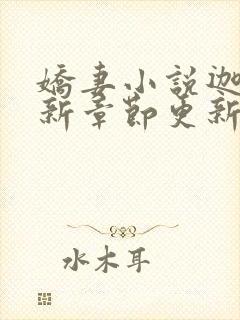 嬌妻小說迦
新章節更新
水木耳